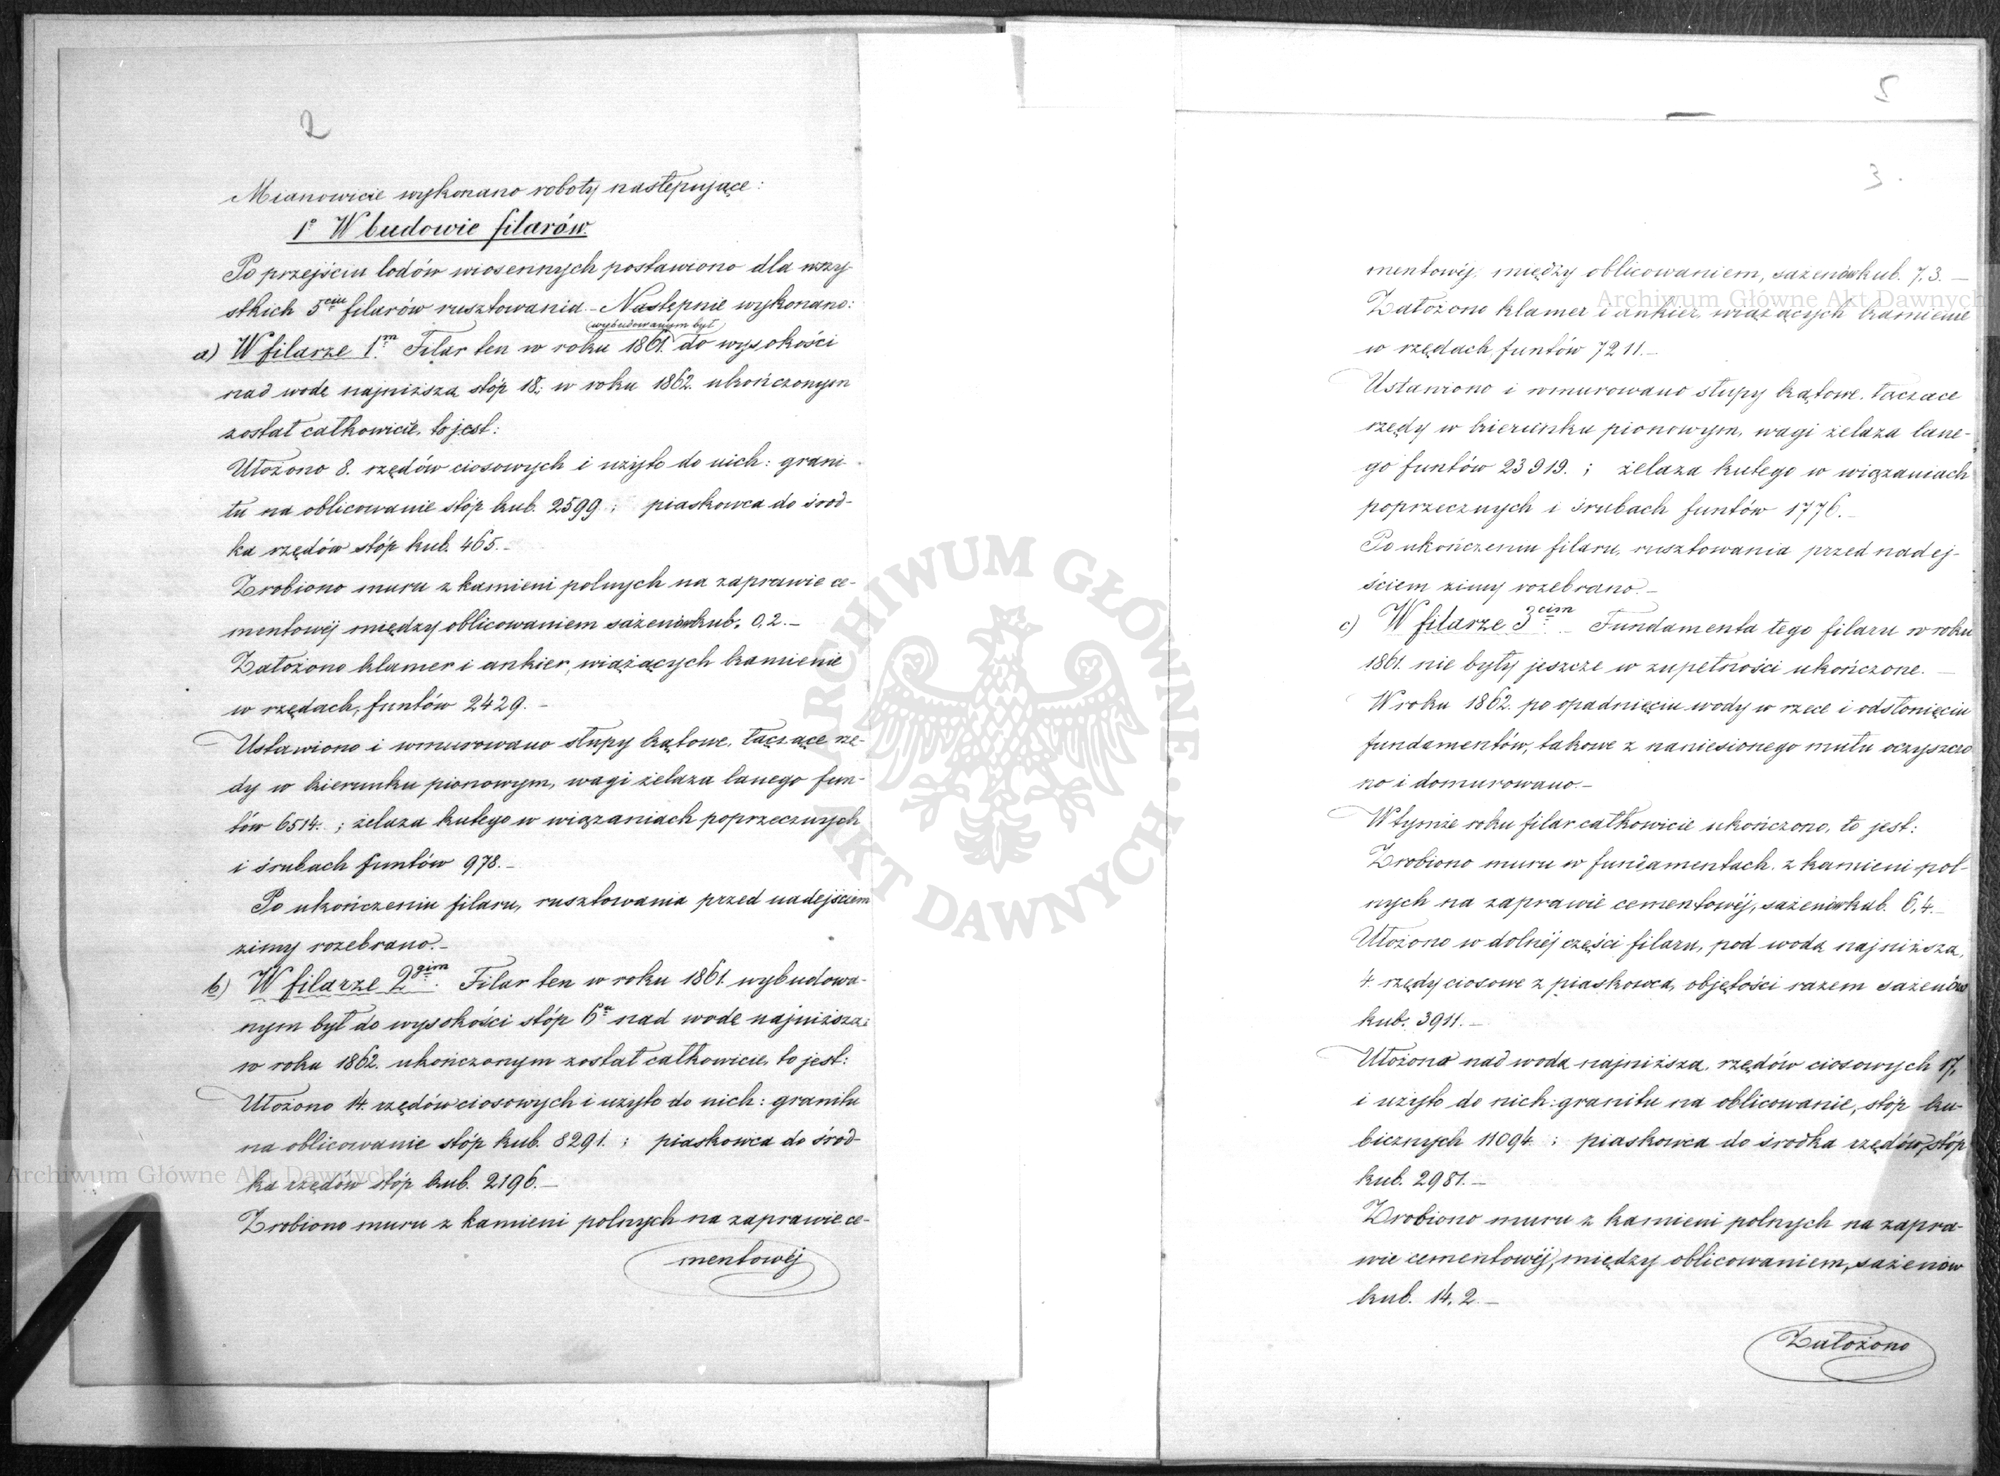 2
Mianowicie wykonano roboty następujące:
1° W budowie filarów.
Po przejściu lodów wiosennych postawiono dla wszy-
stkich 5ciu filarów rusztowania. – Następnie wykonano:
wybudowanym był
a) W filarze 1m Filar ten w roku 1861. do wysokości
nad wodę najniższą stóp 18; w roku 1862 ukończonym
został całkowicie, to jest:
Ułożono 8. rzędów ciosowych i użyto do nich: grani-
tu na oblicowanie stóp kub. 2599; piaskowca do środ-
ka rzędów stóp kub. 465. –
Zrobiono muru z kamieni polnych na zaprawie ce-
mentowéj między oblicowaniem sażenów kub. 0,2. –
Założono klamer i ankier, wiążących kamienie
w rzędach, funtów 2429. –
Ustawiono i wmurowano słupy kątowe, łączące rzę-
dy w kierunku pionowym, wagi żelaza lanego fun-
tów 6514. ; żelaza kutego w wiązaniach poprzecznych
i śrubach funtów 978. –
Po ukończeniu filaru, rusztowania przed nadejściem
zimy rozebrano. –
b) W filarze 2gim. Filar ten w roku 1861 wybudowa-
nym był do wysokości stóp 6u nad wodę najniższą;
w roku 1862. ukończonym został całkowicie, to jest:
Ułożono 14. rzędów ciosowych i użyto do nich: granitu
na oblicowanie stóp kub. 8291. ; piaskowca do środ-
ka rzędów stóp kub. 2196. –
Zrobiono muru z kamieni polnych na zaprawie ce-
mentowéj
5
3.
mentowéj, między oblicowaniem, sażenów kub. 7,3. –
Założono klamer i ankier, wiążących kamienie
w rzędach, funtów 7211. –
Ustawiono i wmurowano słupy kątowe, łączące
rzędy w kierunku pionowym, wagi żelaza lane-
go funtów 23919. ; żelaza kutego w wiązaniach
poprzecznych i śrubach funtów 1776. –
Po ukończeniu filaru, rusztowania przed nadej-
ściem zimy rozebrano. –
c) W filarze 3cim. – Fundamenta tego filaru w roku
1861. nie były jeszcze w zupełności ukończone. –
W roku 1862. po opadnięciu wody w rzece i odsłonięciu
fundamentów, takowe z naniesionego mułu oczyszczo
no i domurowano. –
W tymże roku filar całkowicie ukończono, to jest:
Zrobiono muru w fundamentach, z kamieni pol-
nych na zaprawie cementowéj, sażenów kub. 6,4. –
Ułożono w dolnéj części filaru, pod wodą najniższą,
4. rzędy ciosowe z piaskowca, objętości razem sażenów
kub. 3911. –
Ułożono nad wodą najniższą, rzędów ciosowych 17,
i użyto do nich: granitu na oblicowanie, stóp ku-
bicznych 11094. ; piaskowca do środka rzędów, stóp
kub. 2981. –
Zrobiono muru z kamieni polnych na zapra-
wie cementowéj, między oblicowaniem, sażenów
kub. 14,2. –
Założono
ARCHIWUM GŁÓWNE AKT DAWNYCH
Archiwum Główne Akt Dawnych
Archiwum Główne Akt Dawnych